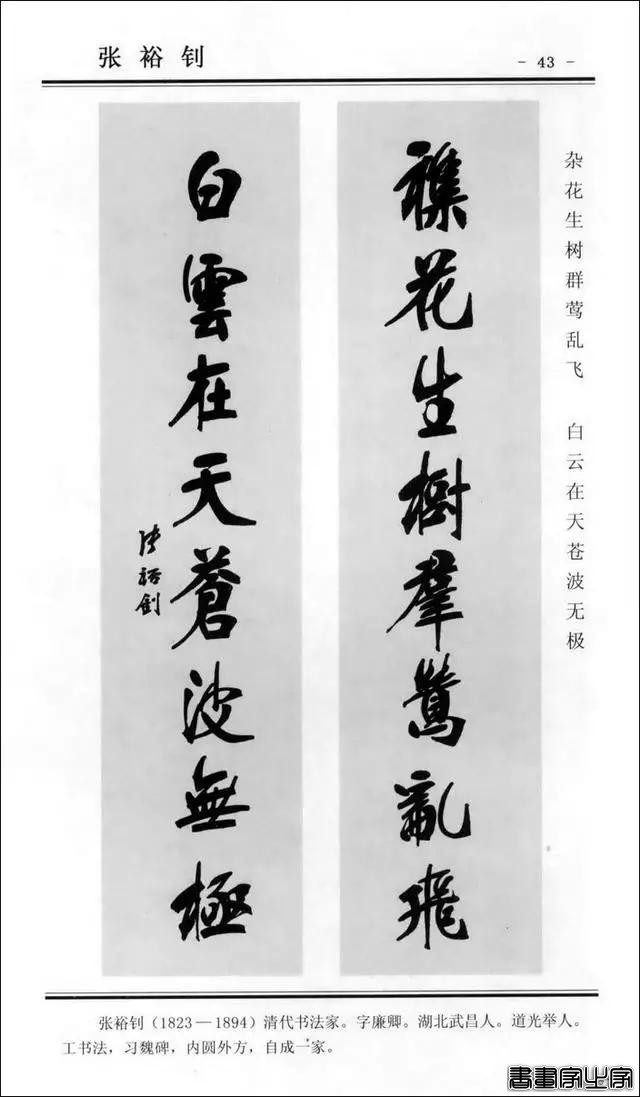 张裕钊
- 43 -
杂花生树群莺乱飞 白云在天苍波无极
襍花生樹羣鶯亂飛
白雲在天蒼波無極
張裕釗
张裕钊（1823—1894）清代书法家。字廉卿。湖北武昌人。道光举人。
工书法，习魏碑，内圆外方，自成一家。
書畫家必字